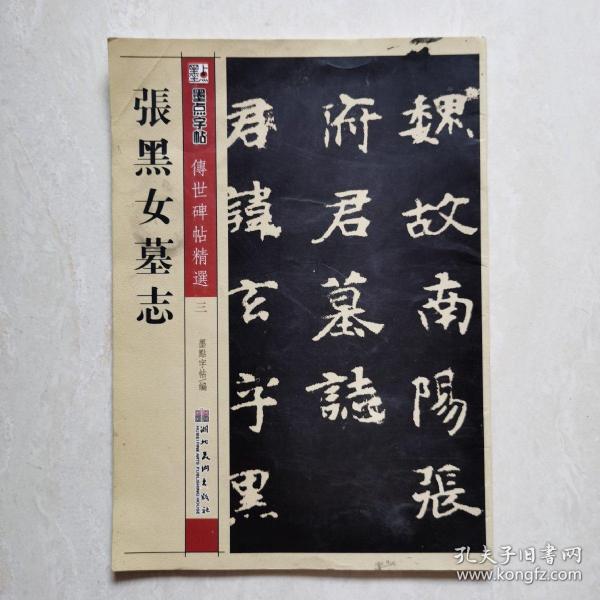 張黑女墓志
墨点
墨点字帖
傳世碑帖精選
三
墨點字帖 編
湖北美术出版社
HUBEI FINE ARTS PUBLISHING HOUSE
魏故南陽張
府君墓誌
君諱玄字黑
孔夫子旧书网
www.kongfz.com